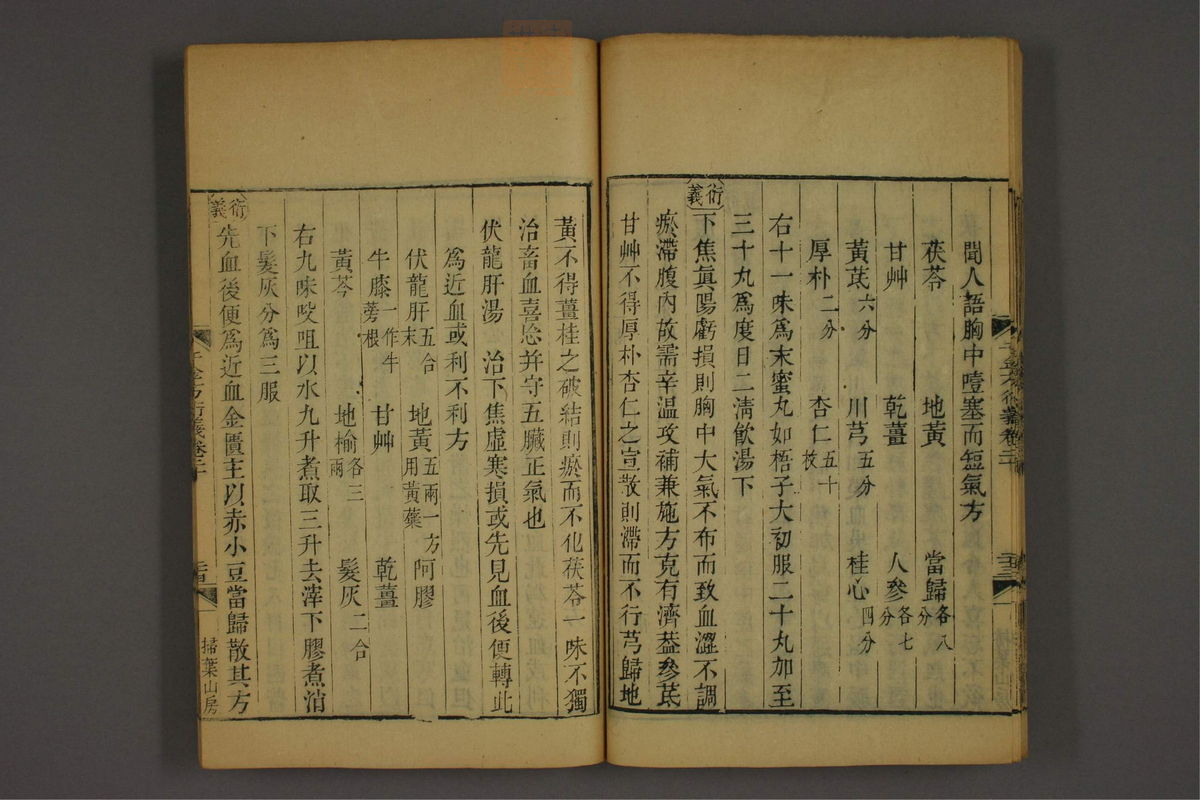 聞人語胸中噎塞而短氣方
茯苓 地黃 當歸各八分
甘艸 乾薑 人參各七分
黃芪六分 川芎五分 桂心四分
厚朴二分 杏仁五十枚
右十一味爲末蜜丸如梧子大初服二十丸加至
三十丸爲度日二淸飮湯下
衍義
下焦眞陽虧損則胸中大氣不布而致血澀不調
瘀滯腹內故需辛溫攻補兼施方克有濟葢參芪
甘艸不得厚朴杏仁之宣散則滯而不行芎歸地
黃不得薑桂之破結則瘀而不化茯苓一味不獨
治畜血喜忘并守五臟正氣也
伏龍肝湯 治下焦虛寒損或先見血後便轉此
爲近血或利不利方
伏龍肝五合末 地黃五兩一方用黃蘗 阿膠
牛膝一作牛蒡根 甘艸 乾薑
黃芩 地榆各三兩 髮灰二合
右九味㕮咀以水九升煮取三升去滓下膠煮消
下髮灰分爲三服
衍義
先血後便爲近血金匱主以赤小豆當歸散其方
千金方衍義卷二十
掃葉山房